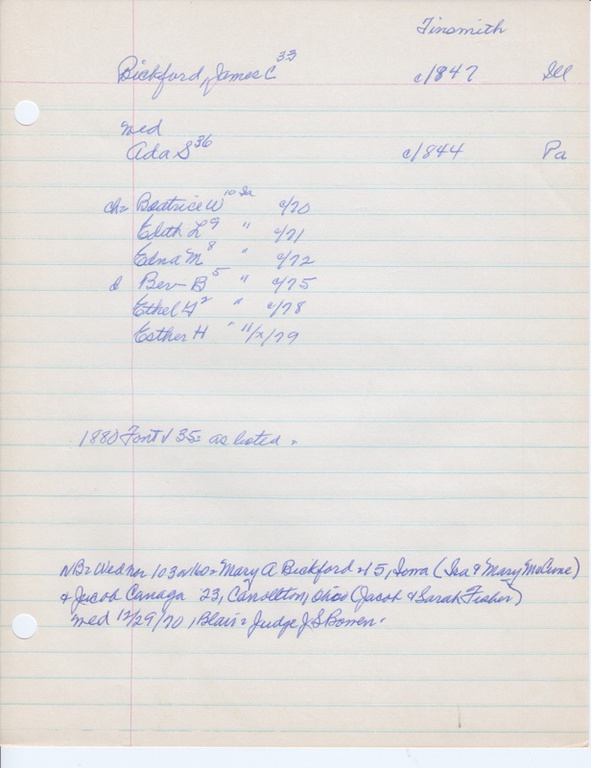 Tinsmith
Bickford, James C 33 c/847 Ill
wed
Ada S 36 c/844 Pa
ch= Beatrice W 10 Ia c/70
Edith L 9 " c/71
Edna M 8 " c/72
d Ber— B 5 " c/75
Ethel 2 " c/78
Esther H " 11/x/79
1880 Font V 35= as listed.
NB= Wed nor 103 = Mary A Bickford 15, Iowa (Ira & Mary McCune)
& Jacob Canaga 23, Carrollton, Ohio (Jacob & Sarah Fisher)
wed 12/29/70, Blair= Judge J S Bowen.